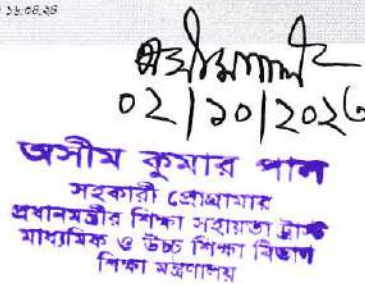 ১৮.০৪.২৪
০২/১০/২০২৩
অসীম কুমার পাল
সহকারী প্রোগ্রামার
প্রধানমন্ত্রীর শিক্ষা সহায়তা ট্রাস্ট
মাধ্যমিক ও উচ্চ শিক্ষা বিভাগ
শিক্ষা মন্ত্রণালয়